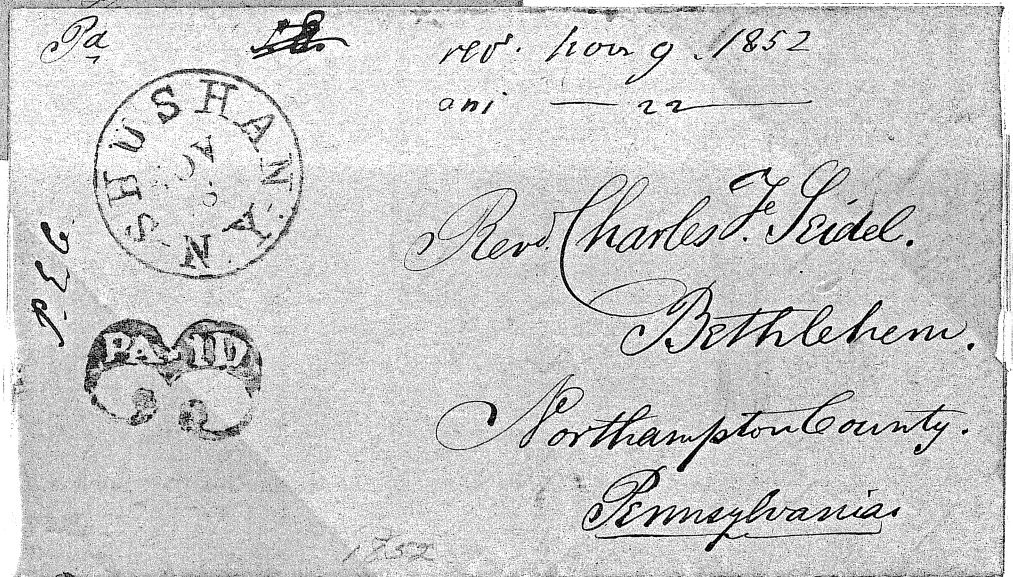 Pd
recd. Nov 9. 1852
ans — 22 —
SHUSHAN N.Y
NOV
Revd. Charles F. Seidel.
Bethlehem.
PAID
Northampton County.
Pennsylvania.
1852